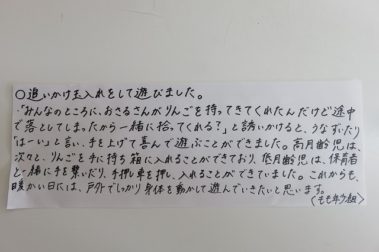 ○追いかけ玉入れをして遊びました。
「みんなのところに、おさるさんがりんごを持ってきてくれたんだけど途中
で落としてしまったから一緒に拾ってくれる?」と誘いかけると、うなずいたり
「はーい」と言い、手を上げて喜んで遊ぶことができました。高月齢児は、
次々と、りんごを手に持ち箱に入れることができており、低月齢児は、保育者
と一緒に手を繋いだり、手押し車を押し、入れることができていました。これからも、
暖かい日には、戸外でしっかり身体を動かして遊んでいきたいと思います。
(もも年少組)